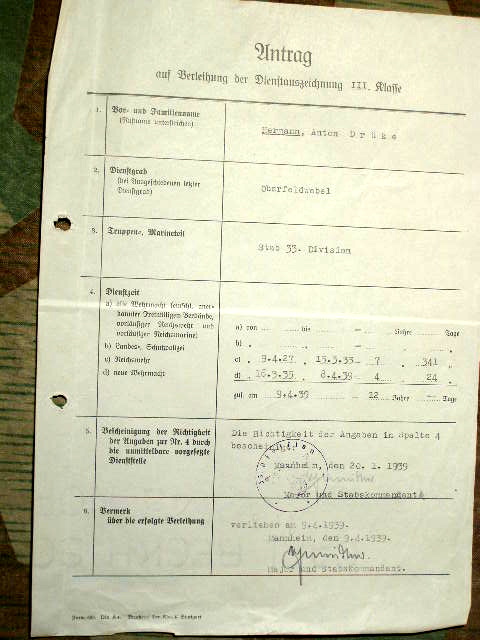 Antrag
auf Verleihung der Dienstauszeichnung III. Klasse
1. Vor- und Familienname
(Rufname unterstreichen)
Hermann, Anton D r ü k e
2. Dienstgrad
(bei Ausgeschiedenen letzter
Dienstgrad)
Oberfeldwebel
3. Truppen-, Marineteil
Stab 33. Division
4. Dienstzeit
a) alte Wehrmacht (einschl. aner-
kannter Freiwilligen-Verbände,
vorläufiger Reichswehr und
vorläufiger Reichsmarine)
b) Landes-, Schutzpolizei
c) Reichswehr
d) neue Wehrmacht
a) von bis — Jahre Tage
b) " —
c) " 9.4.27 " 15.3.35 — 7 " 341 "
d) " 16.3.35 " 8.4.39 — 4 " 24 "
zus. am 9.4.39 — 12 Jahre — Tage
5. Bescheinigung der Richtigkeit
der Angaben zur Nr. 4 durch
die unmittelbare vorgesetzte
Dienststelle
Die Richtigkeit der Angaben in Spalte 4
bescheinigt.
Mannheim, den 20. 1. 1939
Major und Stabskommandant
6. Vermerk
über die erfolgte Verleihung
verliehen am 9.4.1939.
Mannheim, den 9.4.1939.
Major und Stabskommandant.